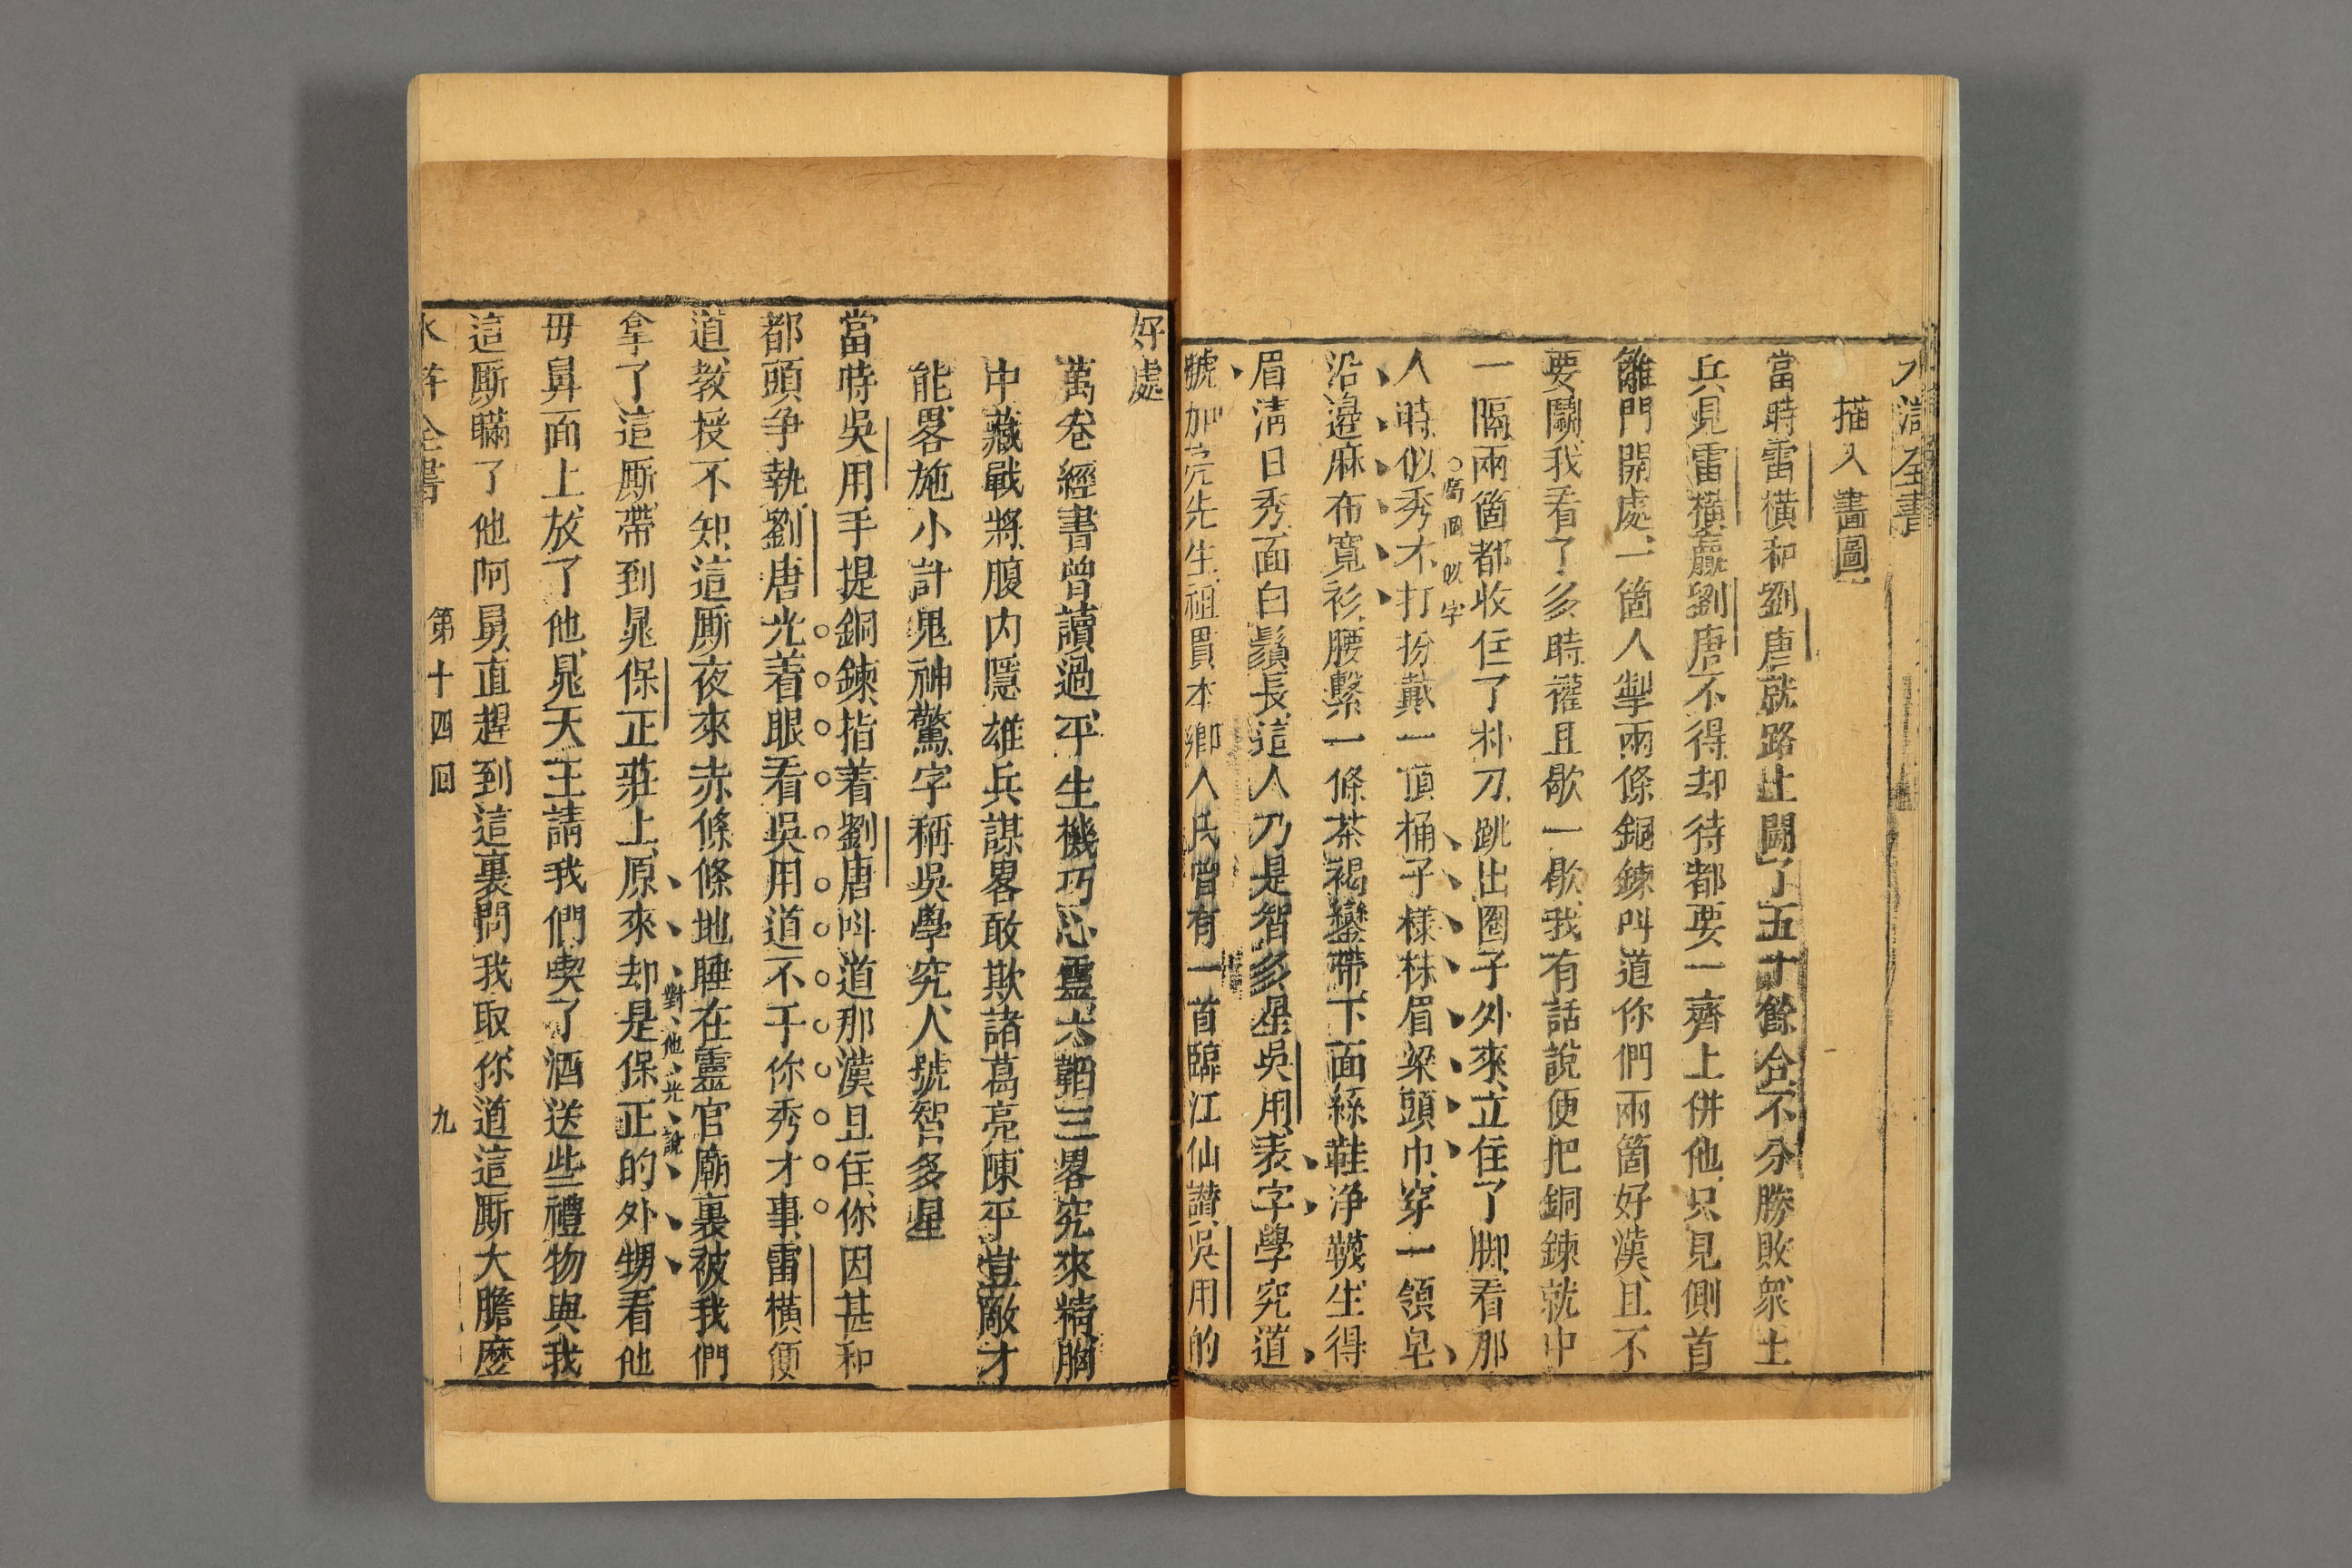 水滸全書
描入畫圖
當時雷橫和劉唐就路上鬬了五十餘合不分勝敗衆土
兵見雷橫贏劉唐不得却待都要一齊上併他只見側首
籬門開處一箇人掣兩條銅鍊叫道你們兩箇好漢且不
要鬬我看了多時權且歇一歇我有話說便把銅鍊就中
一隔兩箇都收住了朴刀跳出圈子外來立住了脚看那
人時似秀才打扮戴一頂桶子樣抹眉梁頭巾穿一領皂
沿邊麻布寬衫腰繫一條茶褐鑾帶下面絲鞋淨韈生得
眉清目秀面白鬚長這人乃是智多星吳用表字學究道
號加亮先生祖貫本鄉人氏曾有一首臨江仙讚吳用的
好處
萬卷經書曾讀過平生機巧心靈六韜三畧究來精胸
中藏戰將腹内隱雄兵謀畧敢欺諸葛亮陳平豈敵才
能畧施小計鬼神驚字稱吳學究人號智多星
當時吳用手提銅鍊指着劉唐叫道那漢且住你因甚和
都頭争執劉唐光着眼看吳用道不干你秀才事雷橫便
道教授不知這厮夜來赤條條地睡在靈官廟裏被我們
對他光說
拿了這厮帶到晁保正莊上原來却是保正的外甥看他
毋舅面上放了他晁天王請我們喫了酒送些禮物與我
這厮瞞了他阿舅直趕到這裏問我取你道這厮大膽麽
水滸全書 第十四回 九